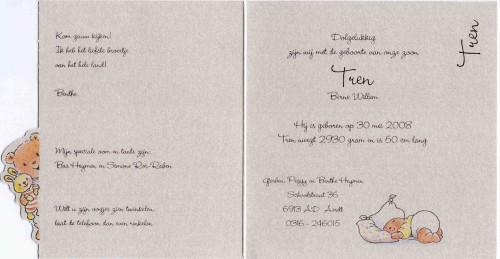 Kom gauw kijken!
Ik heb het liefste broertje
van het hele land!
Benthe
Mijn speciale oom en tante zijn:
Bas Heijmen en Simone Ros-Raben
Wilt u zijn oogjes zien twinkelen
laat de telefoon dan even rinkelen
Dolgelukkig
zijn wij met de geboorte van onze zoon
Tren
Berne Willem
Hij is geboren op 30 mei 2008
Tren weegt 2930 gram en is 50 cm lang
Peggy en Benthe Heijmen
Schoolstraat 36
6913 AD Aerdt
0316 - 246015
Tren